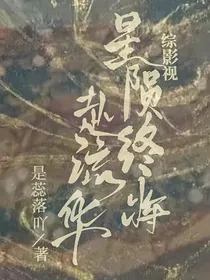 综影视
星陨终将
赴流华
是蕊落吖/著